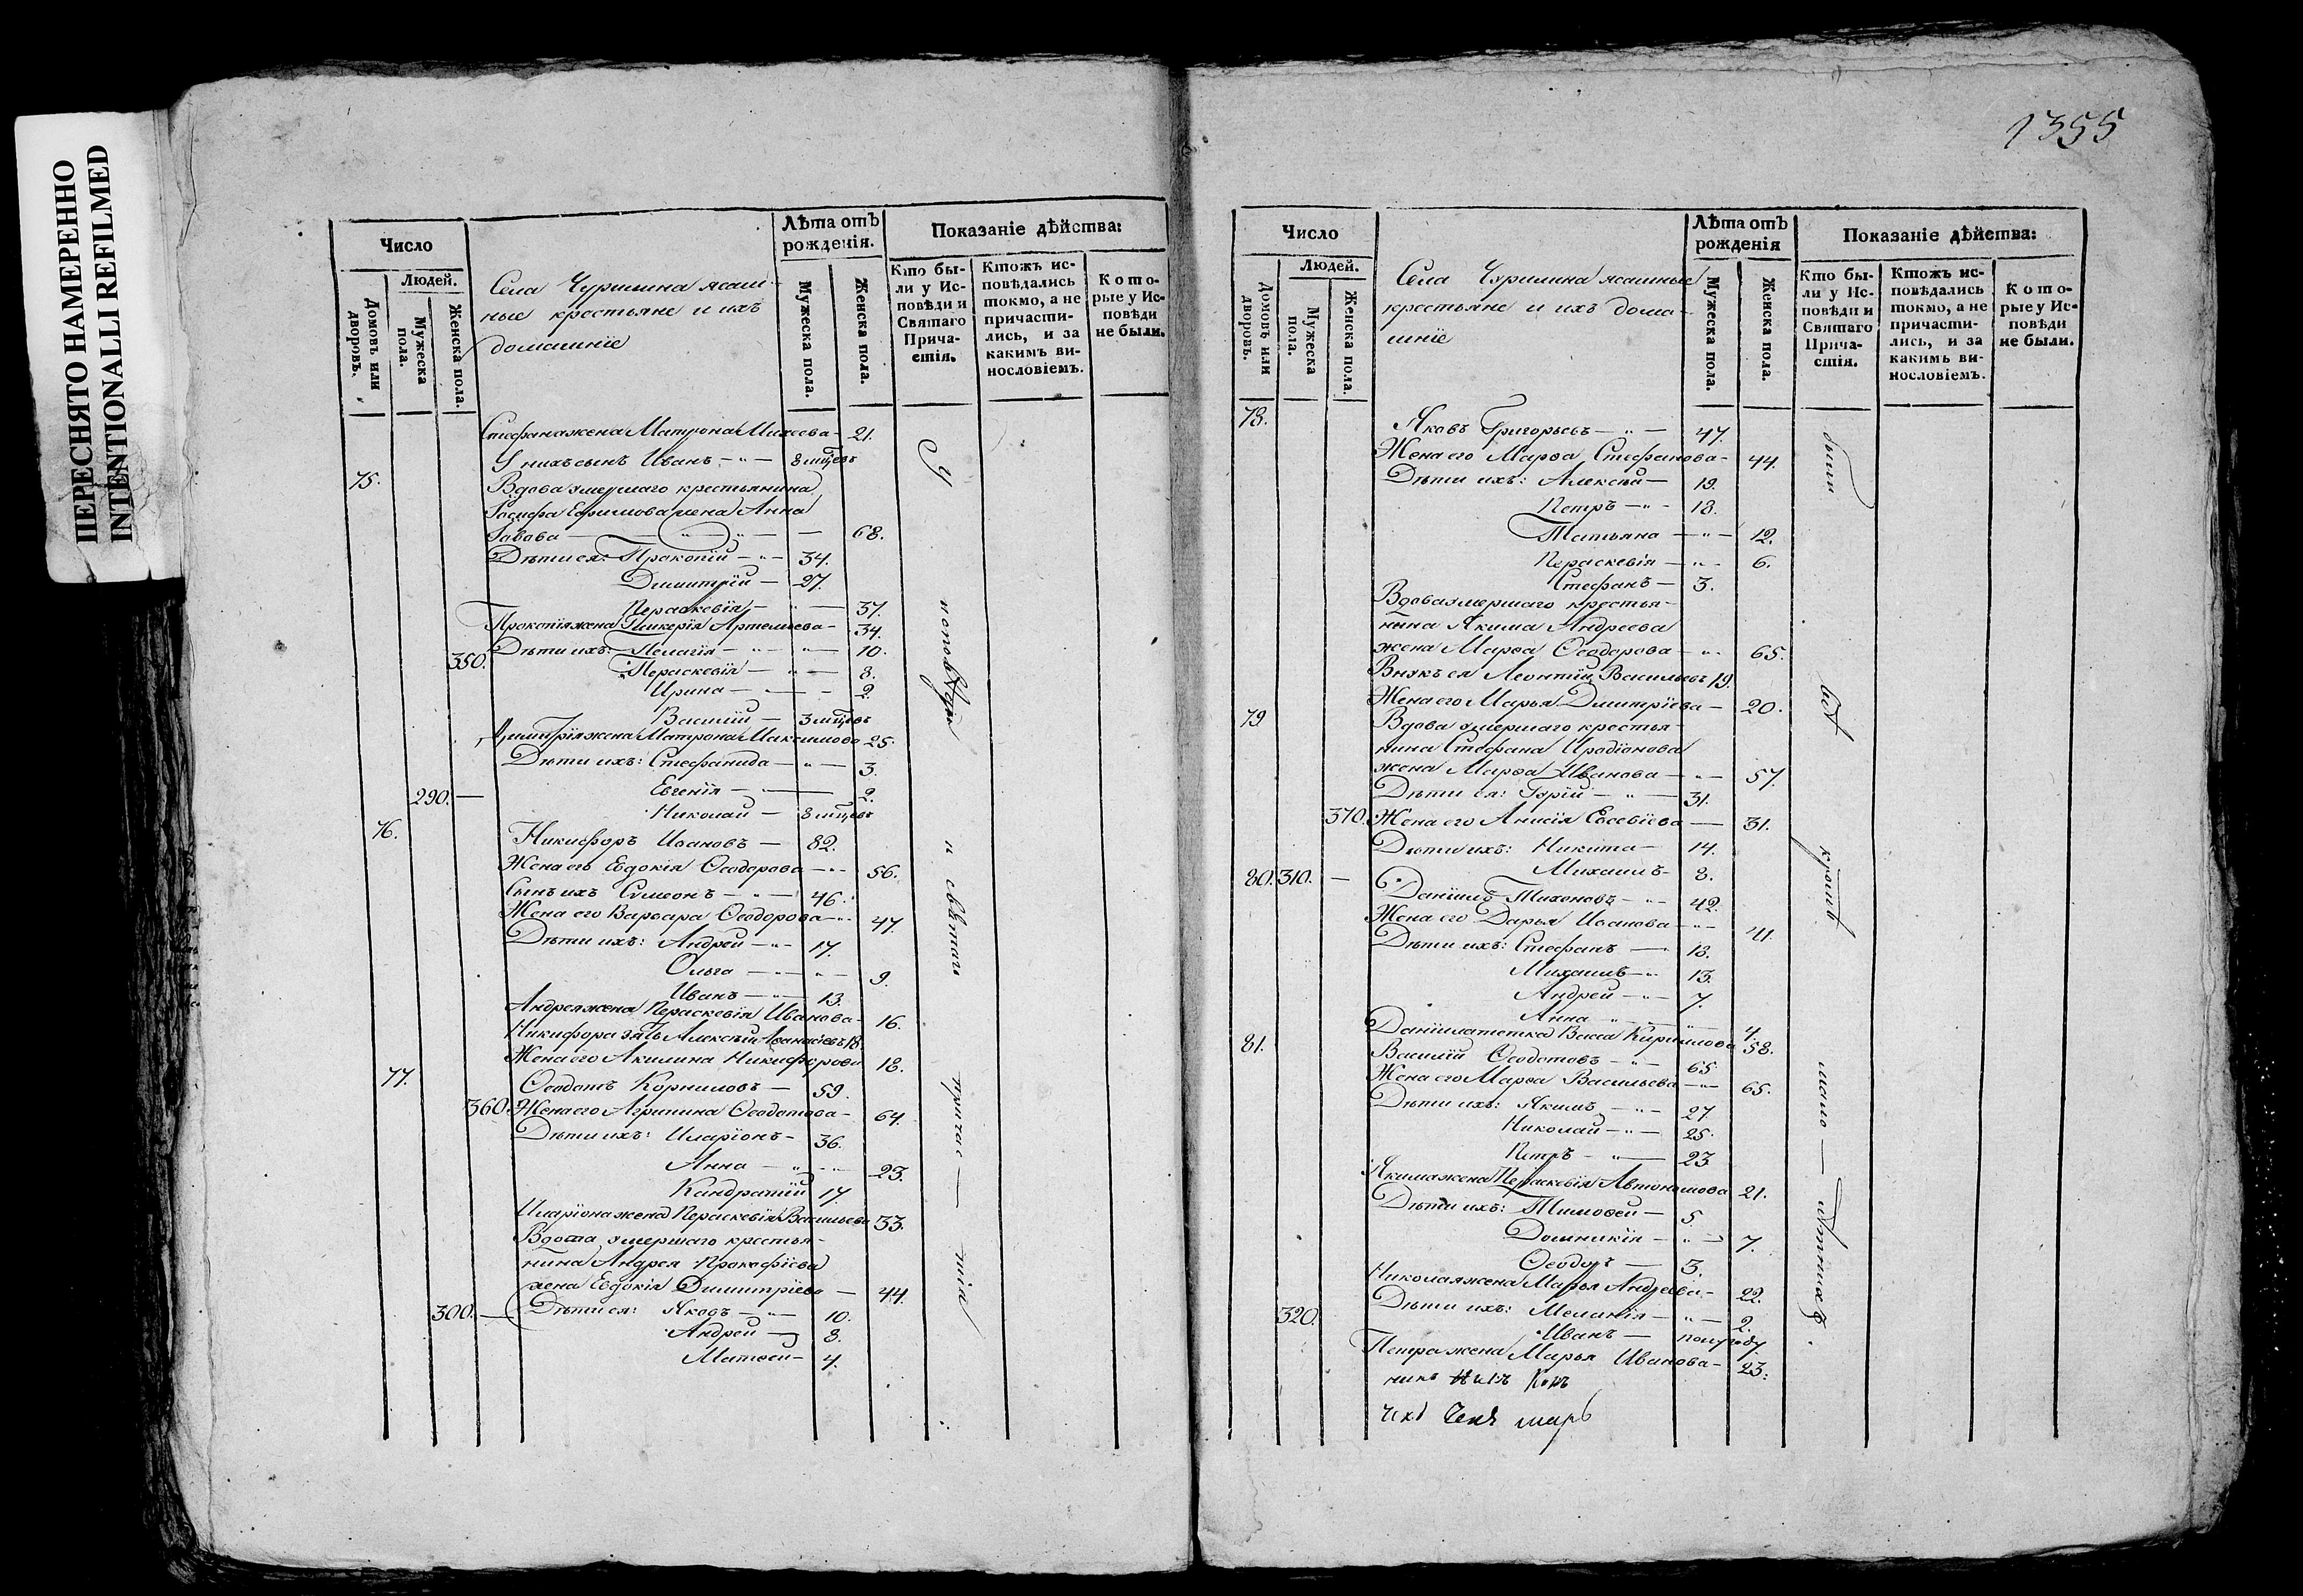 ПЕРЕСНЯТО НАМЕРЕННО
INTENTIONALLI REFILMED
Число
Людей.
Домовъ или дворовъ.
Мужеска пола.
Женска пола.
Села Чурилина ясаш-
ные крестьяне и ихъ
домашніе
Лѣта отъ рожденія.
Мужеска пола.
Женска пола.
Показаніе дѣйства:
Кто бы-
ли у Ис-
повѣди и
Святаго
Прича-
стія.
Ктожъ ис-
повѣдались
токмо, а не
причасти-
лись, и за
какимъ ви-
нословіемъ.
Кото-
рые у Ис-
повѣди
не были.
Стефана жена Матрона Михеева - 21.
У нихъ сынъ Иванъ - 8 мцевъ
75. Вдова умершаго крестьянина
Ефимова жена Анна
Савова 68.
Дѣти ея: Прокопій - 34.
Димитрій - 27.
Пераскевія - 37.
Прокопія жена Гликерія Артемьева - 34.
Дѣти ихъ: Пелагія - 10.
350. Пераскевія - 8.
Ирина - 2.
Василій - 3 мцевъ
Димитрія жена Матрона Максимова 25.
Дѣти ихъ: Стефанида - 3.
290. Евгенія - 2.
Николай - 8 мцевъ
76. Никифоръ Ивановъ - 82.
Жена его Евдокія Ѳеодорова - 56.
Сынъ ихъ Симеонъ - 46.
Жена его Варвара Ѳеодорова - 47.
Дѣти ихъ: Андрей - 17.
Ольга - 9.
Иванъ - 13.
Андрея жена Пераскевія Иванова - 16.
Никифора зять Алексѣй Аѳанасіевъ 18.
Жена его Акилина Никифорова 18.
77. Ѳеодотъ Корниловъ - 59.
360. Жена его Агрипина Ѳеодотова - 64.
Дѣти ихъ: Иларіонъ - 36.
Анна - 23.
Кандратій 17.
Иларіона жена Пераскевія Васильева 33.
Вдова умершаго крестья-
нина Андрея Прокофіева
жена Евдокія Димитріева - 44.
300. Дѣти ея: Яковъ - 10.
Андрей - 8.
Матвей - 4.
У исповѣди и святаго причас - тія
1355
Число
Людей.
Домовъ или дворовъ.
Мужеска пола.
Женска пола.
Села Чурилина ясашные
крестьяне и ихъ дома-
шніе
Лѣта отъ рожденія
Мужеска пола.
Женска пола.
Показаніе дѣйства:
Кто бы-
ли у Ис-
повѣди и
Святаго
Прича-
стія.
Ктожъ ис-
повѣдались
токмо, а не
причасти-
лись, и за
какимъ ви-
нословіемъ.
Кото-
рые у Ис-
повѣди
не были.
78. Яковъ Григорьевъ - 47.
Жена его Марѳа Стефанова - 44.
Дѣти ихъ: Алексѣй - 19.
Петръ - 18.
Татьяна - 12.
Пераскевія - 6.
Стефанъ - 3.
Вдова умершаго крестья-
нина Якима Андреева
жена Марѳа Ѳеодорова - 65.
Внукъ ея Леонтій Васильевъ 19.
Жена его Марья Димитріева - 20.
79 Вдова умершаго крестья-
нина Стефана Иродіонова
жена Марѳа Иванова - 57.
Дѣти ея: Гурій - 31.
370. Жена его Анисія Евсевіева - 31.
Дѣти ихъ: Никита - 14.
Михаилъ - 8.
80. 310. Даніилъ Тихоновъ - 42.
Жена его Дарья Иванова - 41.
Дѣти ихъ: Стефанъ - 18.
Михаилъ - 13.
Андрей - 7.
Анна - 4.
Даніила тетка Васса Кирилова 58.
81. Василій Ѳеодотовъ - 65
Жена его Марѳа Васильева - 65.
Дѣти ихъ: Якимъ - 27.
Николай - 25.
Петръ - 23
Якима жена Пераскевія Автономова 21.
Дѣти ихъ: Тимоѳей - 5.
Домникія - 7.
Ѳеодоръ - 3.
Николая жена Марья Андреева - 22.
Дѣти ихъ: Меланія - 2.
320. Иванъ - полугоду
Петра жена Марья Иванова - 23.
были всѣ кромѣ мало - лѣтнихъ.